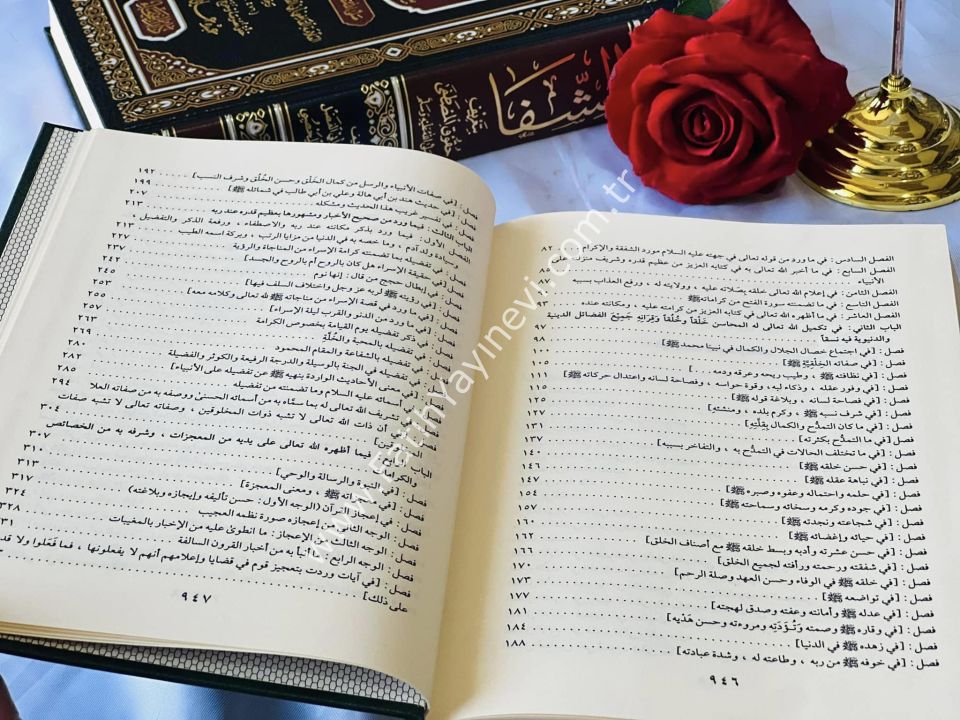 الشفا
بتعريف
حقوق المصطفى
الفصل السادس : في ما ورد من قوله تعالى في جهته عليه السلام مورد الشفقة والإكرام ٨٢
الفصل السابع : في ما أخبر الله تعالى به في كتابه العزيز من عظيم قدره وشريف منزلته
الأنبياء ٨٥
الفصل الثامن : في إعلام الله تعالى خلقه بصلاته عليه ، وولايته له ، ورفع العذاب بسببه
الفصل التاسع : في ما تضمنته سورة الفتح من كراماته ﷺ
الفصل العاشر : في ما أظهره الله تعالى في كتابه العزيز من كرامته عليه ، ومكانته عنده
الباب الثاني : في تكميل الله تعالى له المحاسن خَلْقاً وخُلُقاً وقِرَانِهِ جَمِيعَ الفضائل الدينية
والدنيوية فيه نسقاً ٩٧
فصل : [في اجتماع خصال الجلال والكمال في نبينا محمد ﷺ] ٩٨
فصل : [في صفاته الخِلْقِيَّة ﷺ] ١٠٠
فصل : [في نظافته ﷺ ، وطيب ريحه وعرقه ودمه ....] ١٠٥
فصل : [في وفور عقله ، وذكاء لبه ، وقوة حواسه ، وفصاحة لسانه واعتدال حركاته ﷺ] ١١١
فصل : [في فصاحة لسانه ، وبلاغة قوله ﷺ] ١١٥
فصل : [في شرف نسبه ﷺ ، وكرم بلده ، ومنشئه] ١٢٥
فصل : [في ما كان التمدُّح والكمال بِقِلَّتِهِ] ١٢٧
فصل : [في ما التمدُّح بكثرته] ١٣١
فصل : [في ما تختلف الحالات في التمدُّح به ، والتفاخر بسببه] ١٣٧
فصل : [في حسن خلقه ﷺ] ١٤٠
فصل : [في نباهة عقله ﷺ] ١٤٦
فصل : [في حلمه واحتماله وعفوه وصبره ﷺ] ١٤٨
فصل : [في جوده وكرمه وسخائه وسماحته ﷺ] ١٥٤
فصل : [في شجاعته ونجدته ﷺ] ١٥٧
فصل : [في حيائه وإغضائه ﷺ] ١٦٠
فصل : [في حسن عشرته وأدبه وبسط خلقه ﷺ مع أصناف الخلق] ١٦٢
فصل : [في شفقته ورحمته ورأفته لجميع الخلق] ١٦٦
فصل : [في خلقه ﷺ في الوفاء وحسن العهد وصلة الرحم] ١٧٠
فصل : [في تواضعه ﷺ] ١٧٣
فصل : [في عدله ﷺ وأمانته وعفته وصدق لهجته] ١٧٧
فصل : [في وقاره ﷺ وصمته وَتُؤَدَتِه ومروءته وحسن هَدْيه] ١٨١
فصل : [في زهده ﷺ في الدنيا] ١٨٤
فصل : [في خوفه ﷺ من ربه ، وطاعته له ، وشدة عبادته] ١٨٨
٩٤٦
فصل : [في صفات الأنبياء والرسل من كمال الخَلْق وحسن الخُلُق وشرف النسب] ١٩٢
فصل : [في حديث هند بن أبي هالة وعلي بن أبي طالب في شمائله ﷺ] ١٩٩
فصل : [في تفسير غريب هذا الحديث ومشكله ٢٠٧
الباب الثالث : فيما ورد من صحيح الأخبار ومشهورها بعظيم قدره عند ربه ٢١٣
الفصل الأول : فيما ورد بذكر مكانته عند ربه والاصطفاء ، ورفعة الذكر والتفضيل ،
وسيادة ولد آدم ، وما خصه به في الدنيا من مزايا الرتب ، وبركة اسمه الطيب ٢١٣
فصل : في تفضيله بما تضمنته كرامة الإسراء من المناجاة والرؤية ٢٢٧
فصل : [في حقيقة الإسراء هل كان بالروح أم بالروح والجسد] ٢٣٧
فصل : في إبطال حجج من قال : إنها نوم ٢٤٢
فصل : [في رؤيته ﷺ لربه عز وجل واختلاف السلف فيها] ٢٤٥
فصل : [ما ورد في قصة الإسراء من مناجاته ﷺ لله تعالى وكلامه معه] ٢٥٣
فصل : [ما ورد من الدنو والقرب ليلة الإسراء] ٢٥٥
فصل : في ذكر تفضيله يوم القيامة بخصوص الكرامة ٢٥٧
فصل : في تفضيله بالمحبة والخُلَّة ٢٦٣
فصل : في تفضيله بالشفاعة والمقام المحمود ٢٦٩
فصل : في تفضيله في الجنة بالوسيلة والدرجة الرفيعة والكوثر والفضيلة ٢٨٠
فصل : [في معنى الأحاديث الواردة بنهيه ﷺ عن تفضيله على الأنبياء] ٢٨٢
فصل : في أسمائه عليه السلام وما تضمنته من تفضيله ٢٨٥
فصل : في تشريف الله تعالى له بما سمّاه به من أسمائه الحسنى ووصفه به من صفاته العلا ٢٩٤
فصل : أن ذات الله تعالى لا تشبه ذوات المخلوقين ، وصفاته تعالى لا تشبه صفات
المخلوقين] ٣٠٤
الباب الرابع : فيما أظهره الله تعالى على يديه من المعجزات ، وشرفه به من الخصائص
والكرامات ٣٠٧
فصل : [في النبوة والرسالة والوحي] ٣١٠
فصل : ﷺ ، ومعنى المعجزة] ٣١٣
فصل : في إعجاز القرآن (الوجه الأول : حسن تأليفه وإيجازه وبلاغته) ٣١٧
فصل : الوجه الثاني من إعجازه صورة نظمه العجيب ٣٢٤
فصل : الوجه الثالث من الإعجاز : ما انطوى عليه من الإخبار بالمغيبات ٣٢٨
فصل : الوجه الرابع : أنبأ به من أخبار القرون السالفة
فصل : [في آيات وردت بتعجيز قوم في قضايا وإعلامهم أنهم لا يفعلونها ، فما فَعَلوا ولا قد
على ذلك]
٩٤٧
www.FatihYayinevi.com.tr